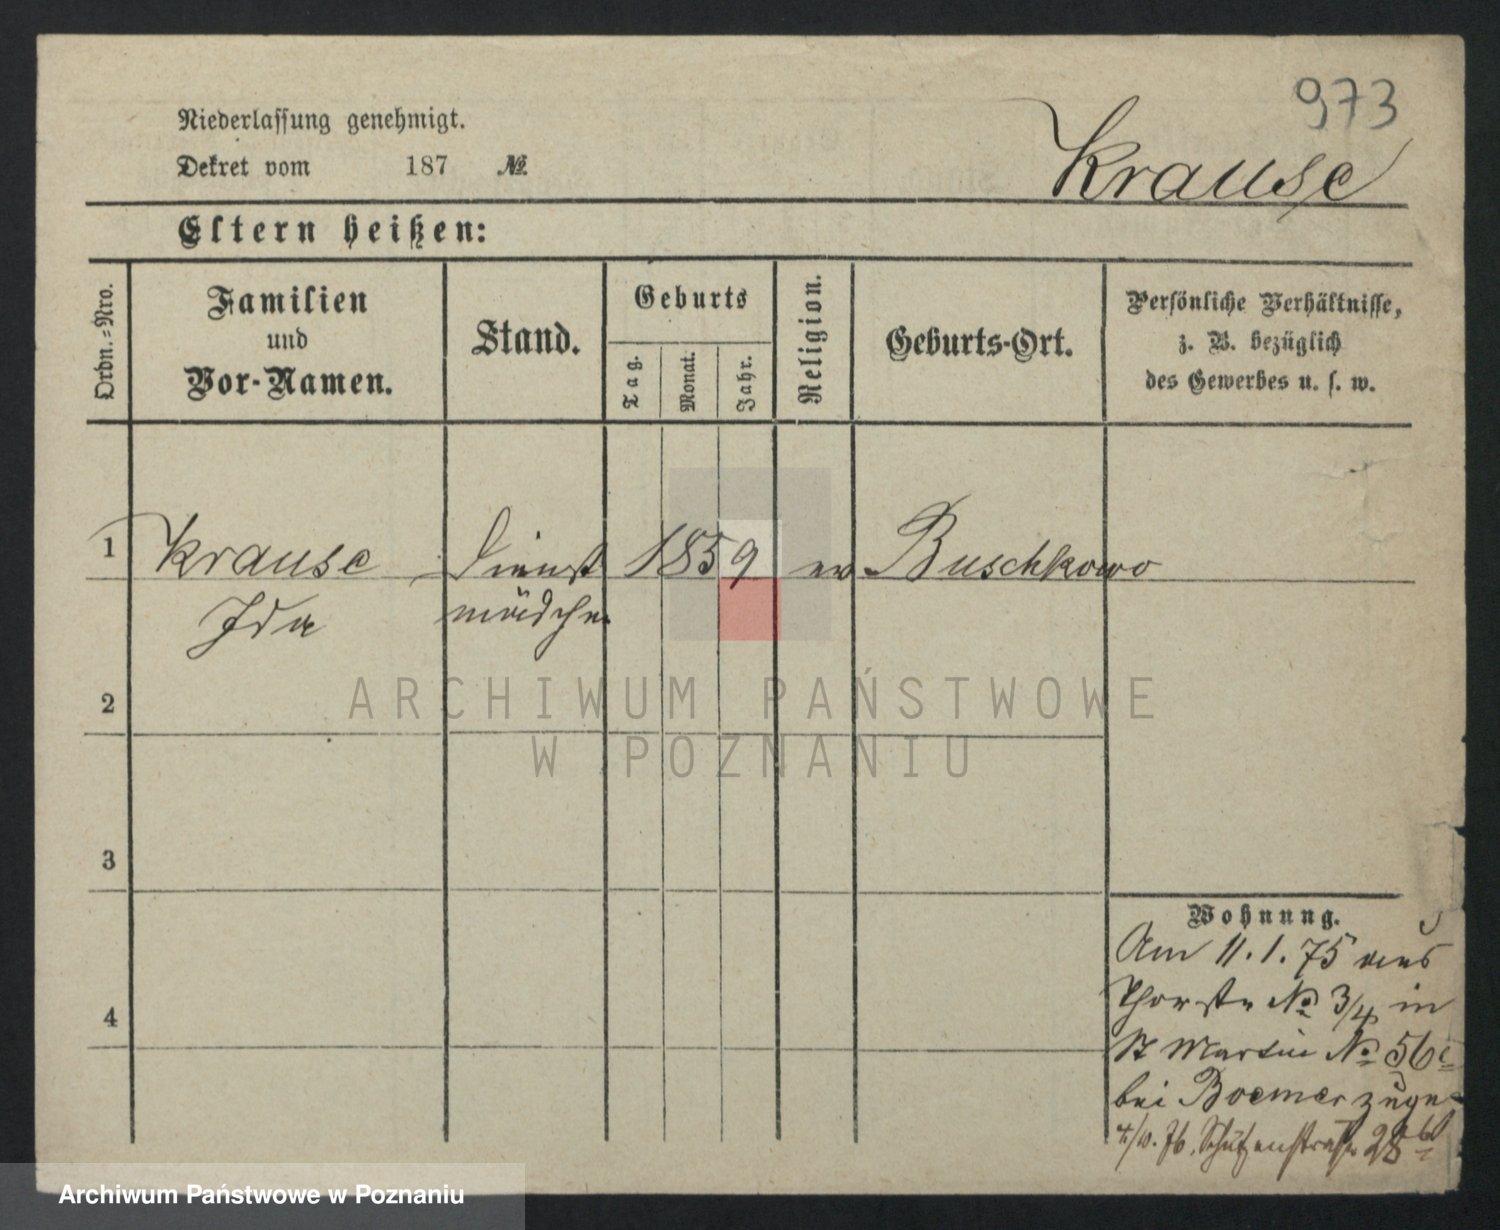 973
Niederlassung genehmigt.
Krause
Dekret vom 187 №
Eltern heißen:
Ordn.-Nro.
Familien
und
Vor-Namen.
Stand.
Geburts
Tag.
Monat.
Jahr.
Religion.
Geburts-Ort.
Persönliche Verhältnisse,
z. B. bezüglich
des Gewerbes u. s. w.
1 Krause Dienst 1859 ev Buschkowo
Ida mädchen
2
ARCHIWUM PAŃSTWOWE
W POZNANIU
3
Wohnung.
Am 11.1.75 aus
№ 3/4 in
4
St Martin № 56c
bei Boemer
Schützenstraße 28b
Archiwum Państwowe w Poznaniu